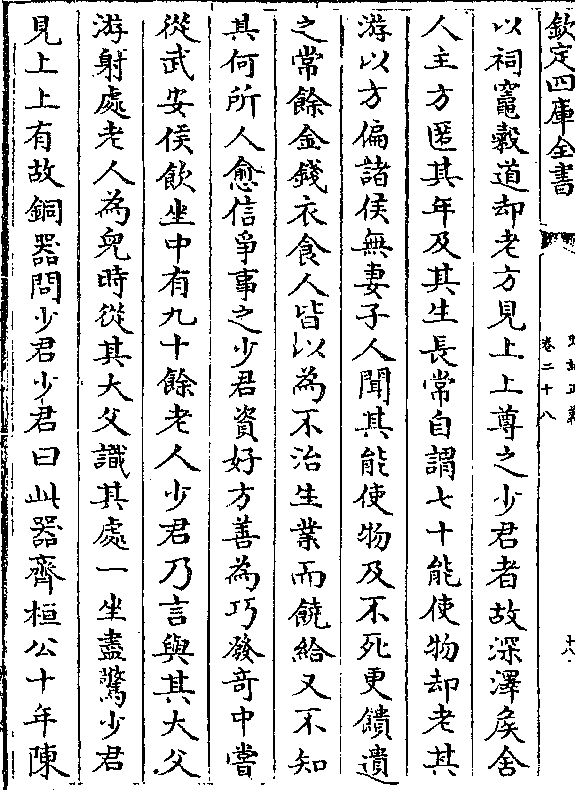 欽定四庫全書
史記正義
卷二十八
十六
以祠竈穀道却老方見上上尊之少君者故深澤矦舍
人主方匿其年及其生長常自謂七十能使物却老其
游以方徧諸侯無妻子人聞其能使物及不死更饋遺
之常餘金錢衣食人皆以為不治生業而饒給又不知
其何所人愈信爭事之少君資好方善為巧發奇中嘗
從武安侯飲坐中有九十餘老人少君乃言與其大父
游射處老人為兒時從其大父識其處一坐盡驚少君
見上上有故銅器問少君少君曰此器齊桓公十年陳